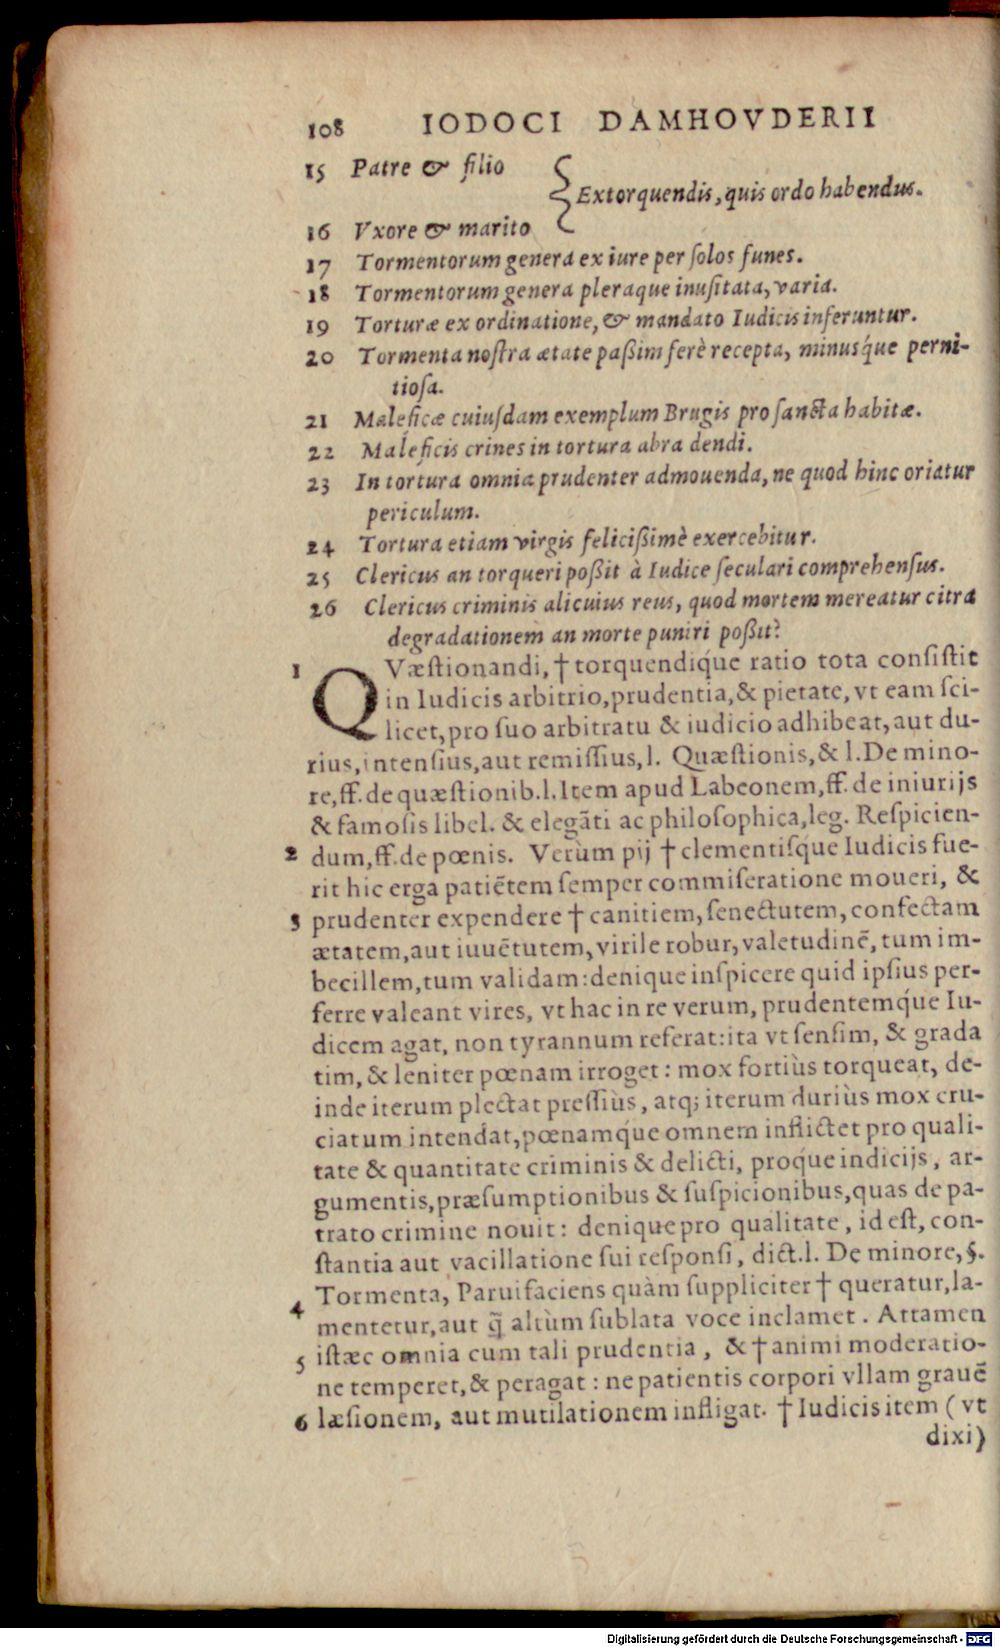 108 IODOCI DAMHOVDERII
15 Patre & filio
Extorquendis, quis ordo habendus.
16 Vxore & marito
17 Tormentorum genera ex iure per ſolos funes.
18 Tormentorum genera pleraque inuſitata, varia.
19 Torturæ ex ordinatione, & mandato Iudicis inferuntur.
20 Tormenta noſtra ætate paßim ferè recepta, minusq́ue perni-
tioſa.
21 Maleficæ cuiuſdam exemplum Brugis pro ſancta habitæ.
22 Maleficis crines in tortura abra dendi.
23 In tortura omnia prudenter admouenda, ne quod hinc oriatur
periculum.
24 Tortura etiam virgis felicißimè exercebitur.
25 Clericus an torqueri poßit à Iudice ſeculari comprehenſus.
26 Clericus criminis alicuius reus, quod mortem mereatur citra
degradationem an morte puniri poßit?
1 QVæſtionandi, † torquendiq́ue ratio tota conſiſtit
in Iudicis arbitrio, prudentia, & pietate, vt eam ſci-
licet, pro ſuo arbitratu & iudicio adhibeat, aut du-
rius, intenſius, aut remiſſius, l. Quæſtionis, & l. De mino-
re, ff. de quæſtionib. l. Item apud Labeonem, ff. de iniurijs
& famoſis libel. & elegãti ac philoſophica, leg. Reſpicien-
2 dum, ff. de pœnis. Verùm pij † clementiſq́ue Iudicis fue-
rit hic erga patiẽtem ſemper commiſeratione moueri, &
3 prudenter expendere † canitiem, ſenectutem, confectam
ætatem, aut iuuẽtutem, virile robur, valetudinẽ, tum im-
becillem, tum validam: denique inſpicere quid ipſius per-
ferre valeant vires, vt hac in re verum, prudentemq́ue Iu-
dicem agat, non tyrannum referat: ita vt ſenſim, & grada
tim, & leniter pœnam irroget: mox fortiùs torqueat, de-
inde iterum plectat preſſiùs, atq; iterum duriùs mox cru-
ciatum intendat, pœnamq́ue omnem inflictet pro quali-
tate & quantitate criminis & delicti, proq́ue indicijs, ar-
gumentis, præſumptionibus & ſuſpicionibus, quas de pa-
trato crimine nouit: denique pro qualitate, id eſt, con-
ſtantia aut vacillatione ſui reſponſi, dict. l. De minore, §.
Tormenta, Paruifaciens quàm ſuppliciter † queratur, la-
4 mentetur, aut q̃ altùm ſublata voce inclamet. Attamen
5 iſtæc omnia cum tali prudentia, & † animi moderatio-
ne temperet, & peragat: ne patientis corpori vllam grauẽ
6 læſionem, aut mutilationem infligat. † Iudicis item (vt
dixi)
Digitalisierung gefördert durch die Deutsche Forschungsgemeinschaft - DFG